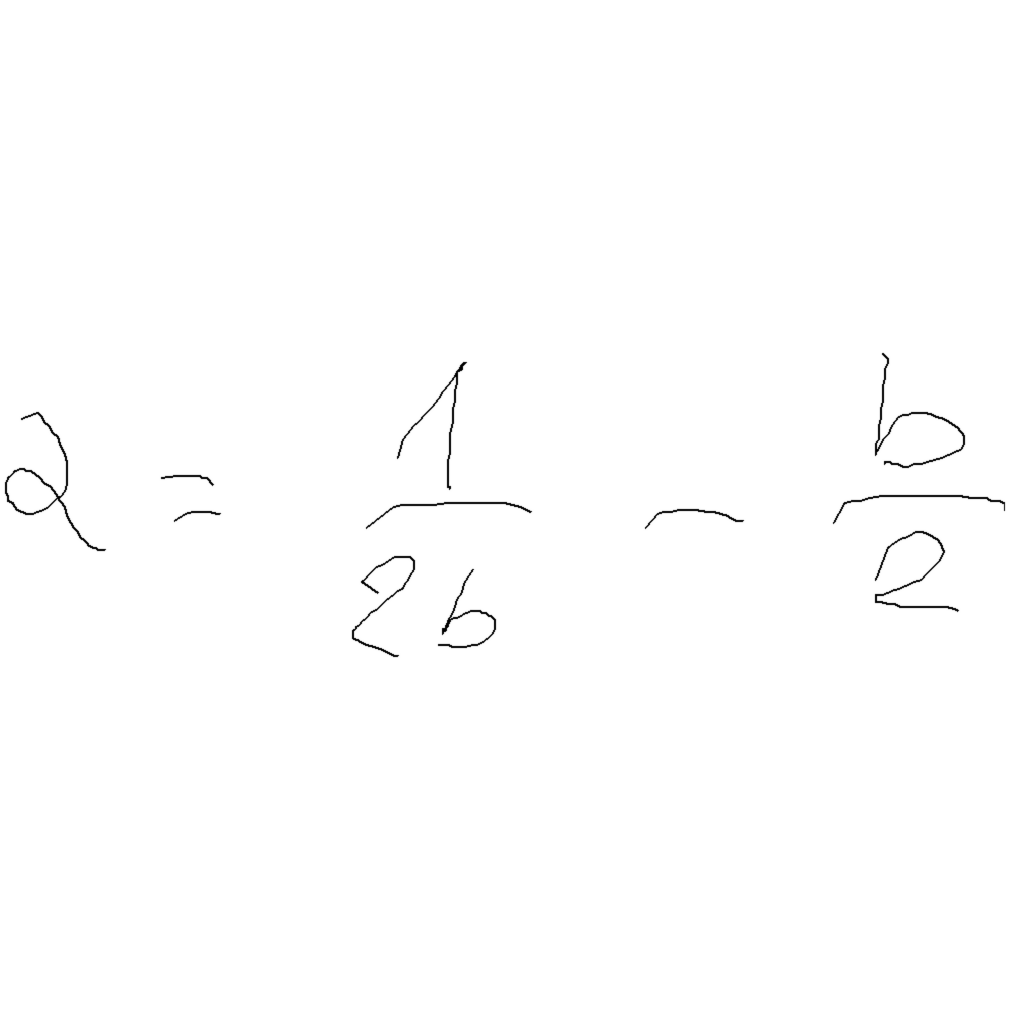 2 = 1/2b - b/2